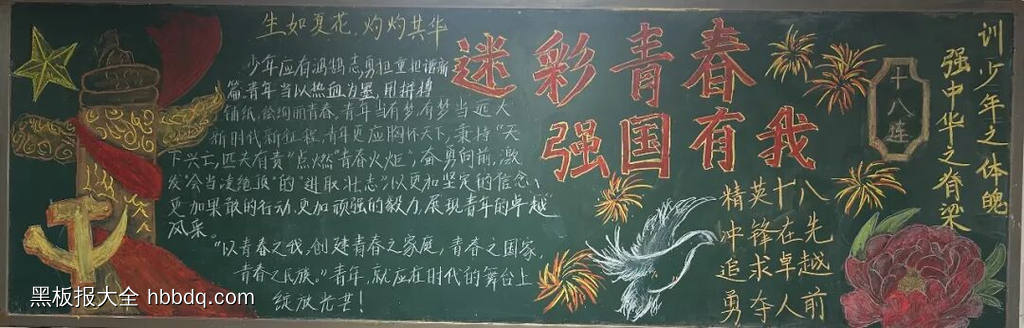 生如夏花,灼灼其华
少年应有鸿鹄志,勇担重担谱新
篇,青年当以热血为墨,用拼搏
铺纸,绘绚丽青春,青年当有梦,有梦当远大
新时代新征程,青年更应胸怀天下,秉持“天
下兴亡,匹夫有责”点燃“青春火炬”,奋勇向前,激
发“会当凌绝顶”的“进取壮志”以更加坚定的信念、
更加果敢的行动,更加顽强的毅力,展现青年的卓越
风采。
“以青春之我,创建青春之家庭,青春之国家,
青春之民族。”青年,就应在时代的舞台上
绽放光芒!
迷彩青春
强国有我
精英十八
冲锋在先
追求卓越
勇夺人前
十八连
训少年之体魄
强中华之脊梁
黑板报大全 hbbdq.com